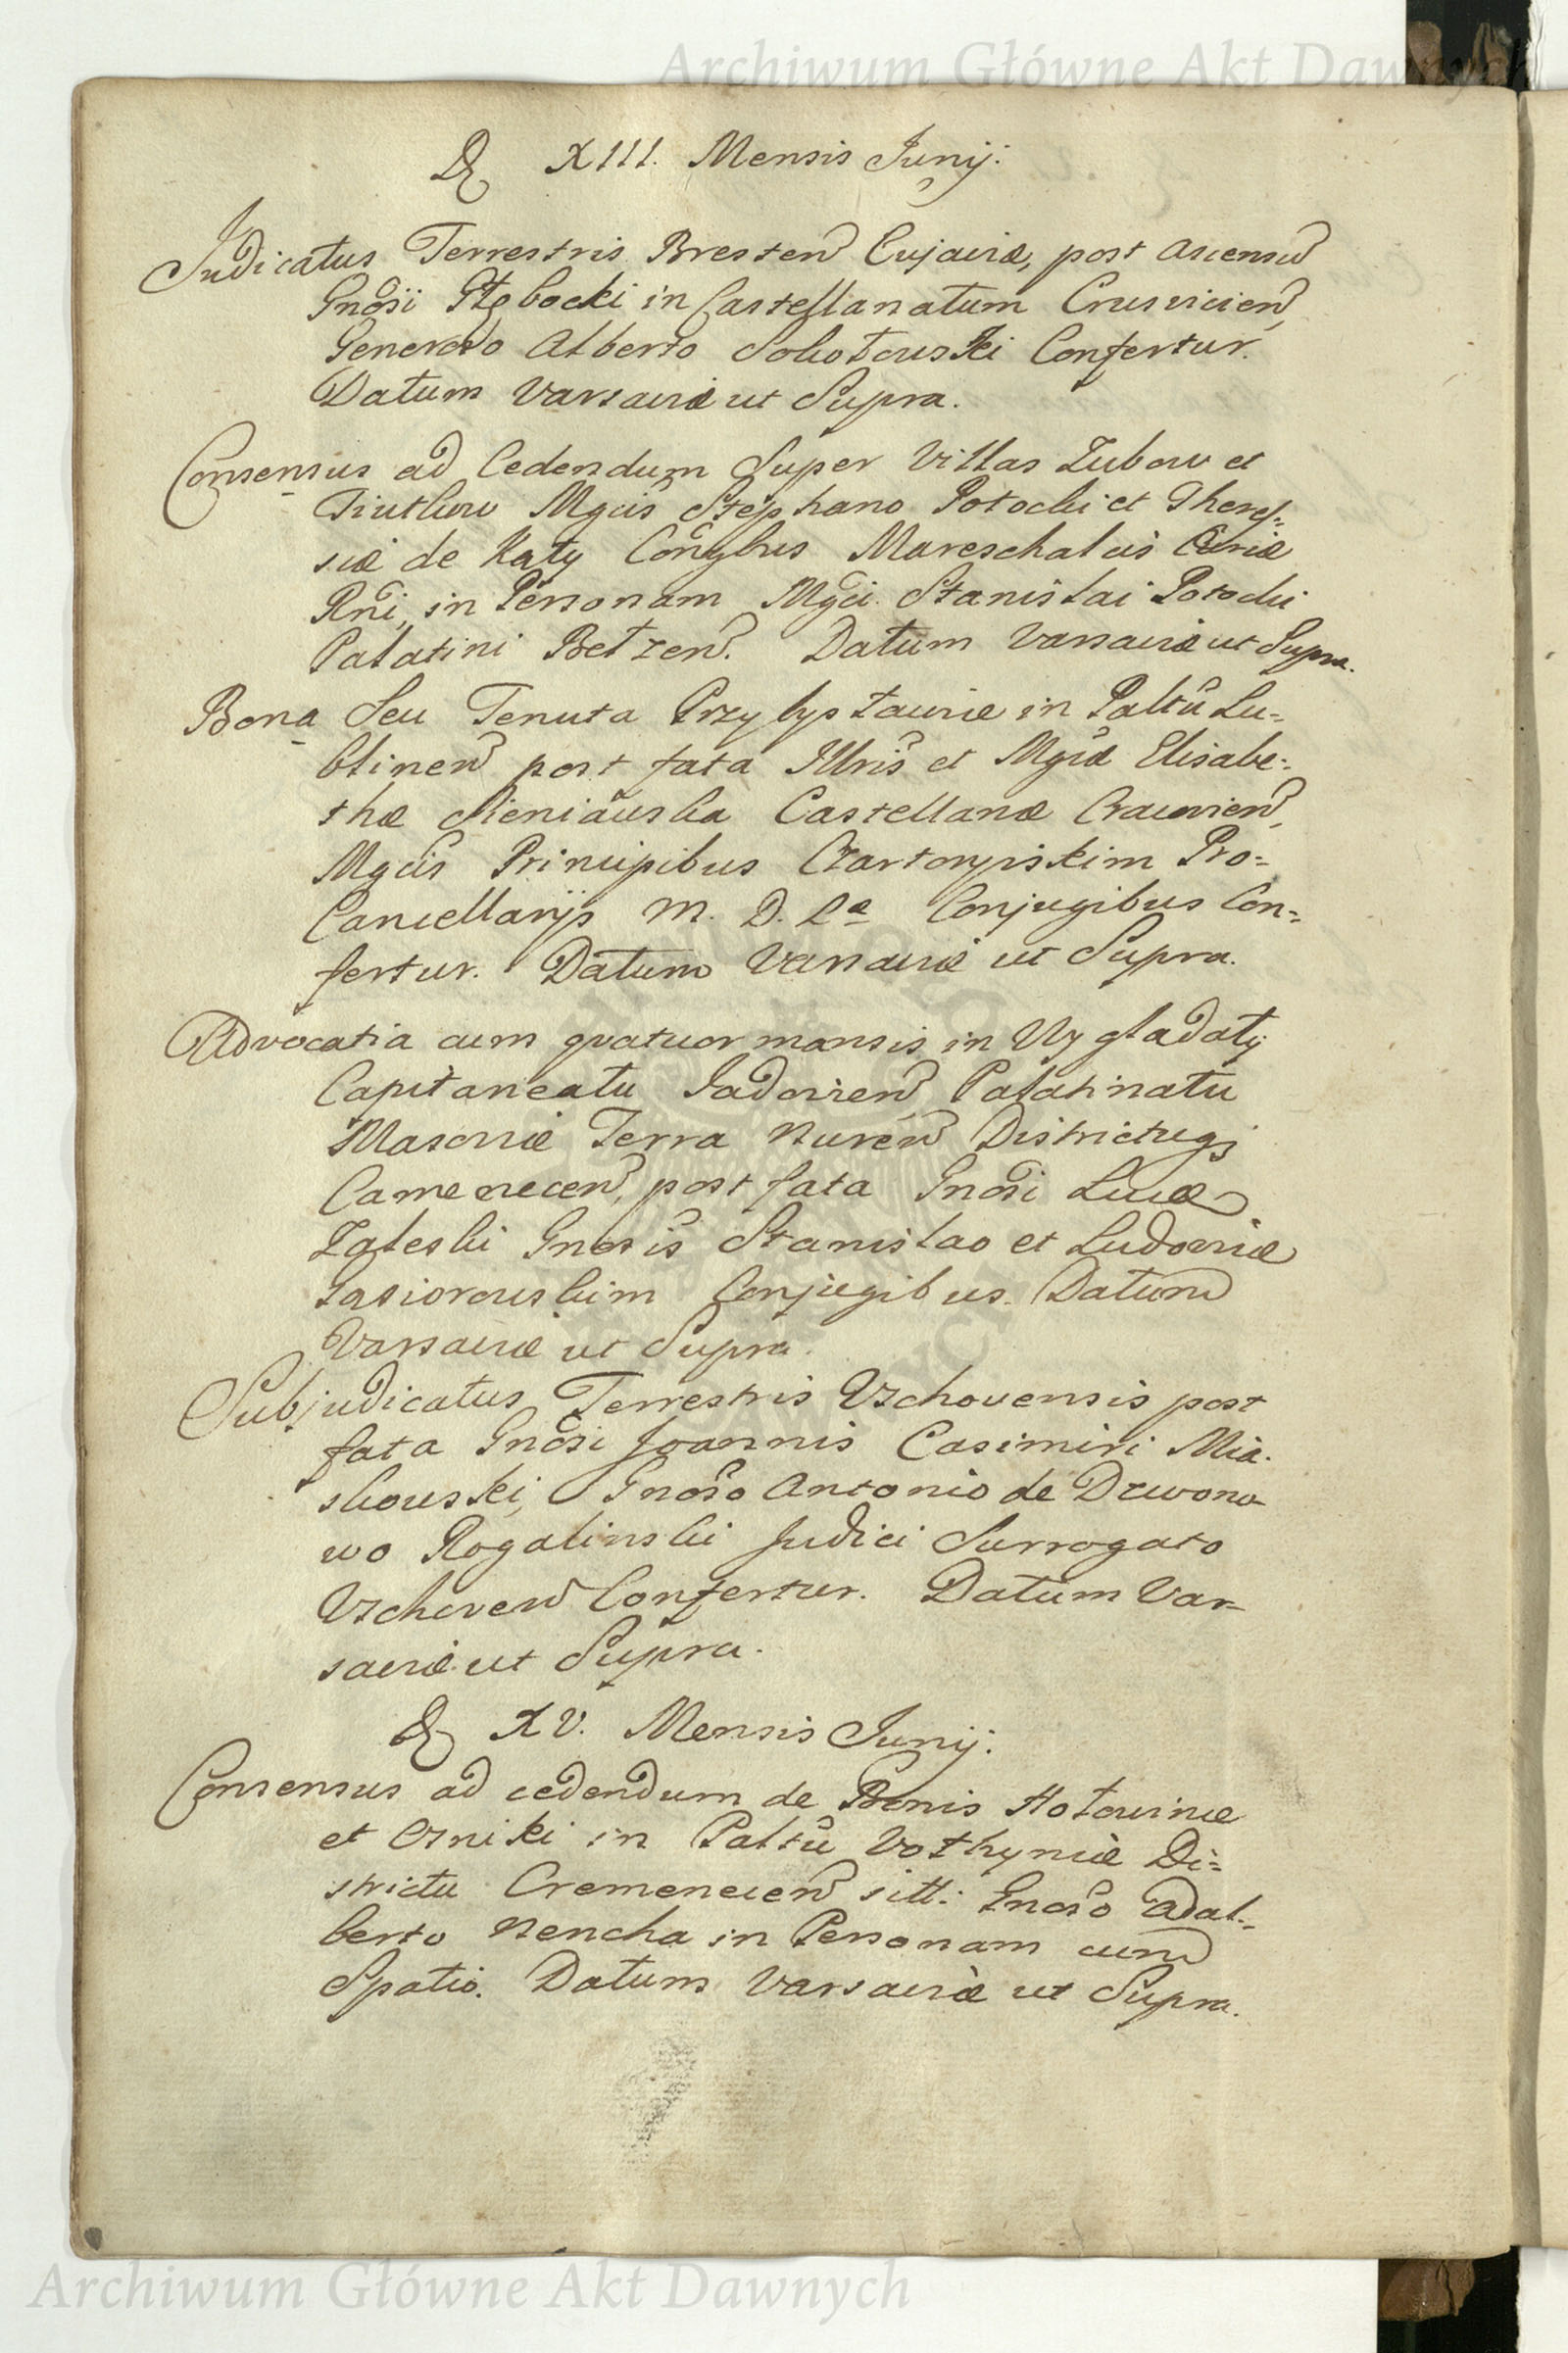 Archiwum Główne Akt Dawnych
D XIII. Mensis Junij.
Judicatus Terrestris Bresten Cujaviæ, post ascensũ
Gnosi Głębocki in Castellanatum Crusvicien,
Generoso Alberto Sokołowski Confertur.
Datum Varsaviæ ut Supra.
Consensus ad Cedendum Super Villas Zubow et
Tiutkow Mgcis Stephano Potocki et There-
siæ de Katy Conjgbus Mareschalcis Curiæ
Rni, in Personam Mgci Stanislai Potocki
Palatini Belzen. Datum Varsaviæ ut Supra.
Bona Seu Tenuta Przybysławiæ in Paltũ Lu=
blinen post fata Illris et Mgcæ Elisabe=
thæ Sieniawska Castellanæ Cracovien,
Mgcis Principibus Czartoryiskim Pro=
Cancellarijs M. D. L. Conjugibus Con=
fertur. Datum Varsaviæ ut Supra.
Advocatia cum quatuor mansis in Wygladały
Capitaneatu Jadovien Palatinatu
Masoviæ Terra Nuren Districtuqz
Camenecen, post fata Gnosi Lucæ
Zaleski Gnosis Stanislao et Ludoviæ
Gasiorowskim Conjugibus. Datum
Varsaviæ ut Supra.
Subjudicatus Terrestris Vschovensis post
fata Gnosi Joannis Casimiri Mia-
skowski, Gnoso Antonio de Dzwono-
wo Rogalinski Judici Surrogato
Vschoven Confertur. Datum Var=
saviæ ut Supra.
D XV. Mensis Junij.
Consensus ad cedendum de Bonis Hołowince
et Czniki in Paltũ Volhyniæ Di=
strictu Cremenecen sitt: Gnoso Adal=
berto Nencha in Personam cum
Spatio. Datum Varsaviæ ut Supra.
Archiwum Główne Akt Dawnych